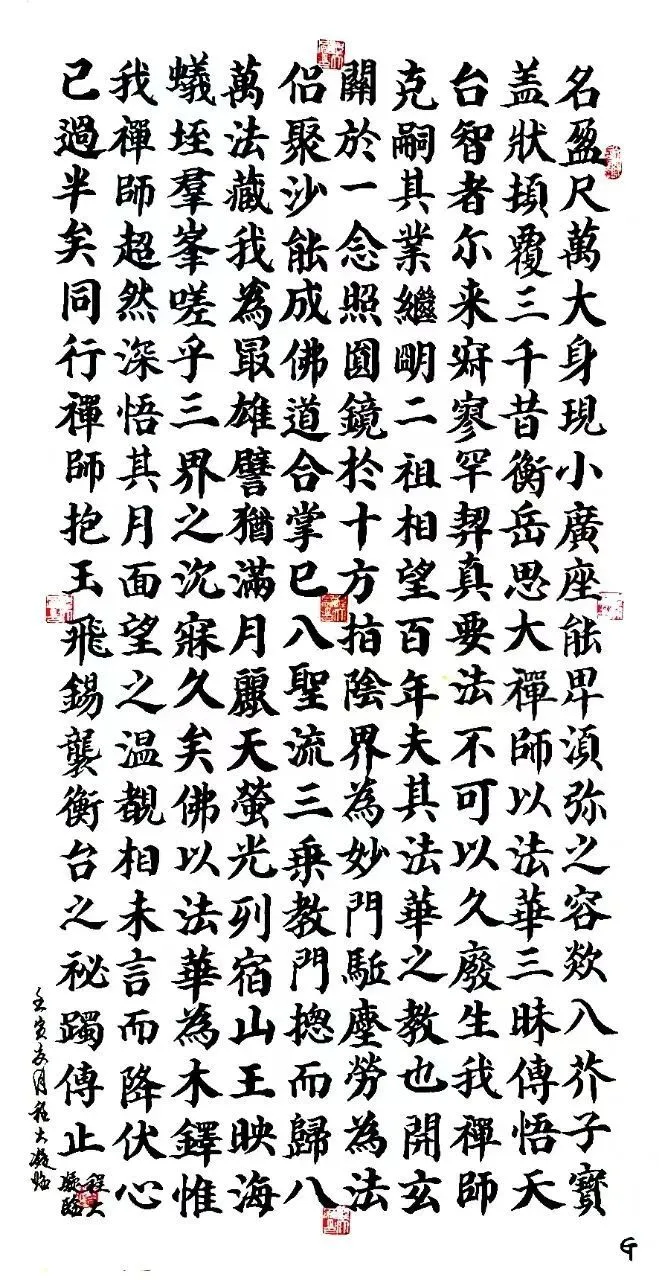 名盈尺萬大身現小廣座能卑湏弥之容欻入芥子寶
盖狀頂覆三千昔衡岳思大禪師以法華三昧傳悟天
台智者尔来寂寥罕契真要法不可以久廢生我禪師
克嗣其業繼明二祖相望百年夫其法華之教也開玄
關於一念照圓鏡於十方指陰界為妙門駈塵勞為法
侶聚沙能成佛道合掌已入聖流三乗教門揔而歸八
萬法藏我為最雄譬猶滿月麗天螢光列宿山王映海
蟻垤羣峯嗟乎三界之沉寐久矣佛以法華為木鐸惟
我禪師超然深悟其月面望之温覩相未言而降伏心
已過半矣同行禪師抱玉飛錫襲衡台之祕躅傳止
壬寅亥月程大凝臨